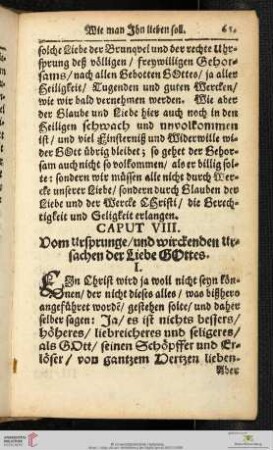 Wie man Ihn lieben soll. 61.
solche Liebe der Brunqvel und der rechte Uhr-
sprung deß völligen / freywilligen Gehor-
sams / nach allen Gebotten GOttes / ja aller
Heiligkeit / Tugenden und guten Wercken /
wie wir bald vernehmen werden. Wie aber
der Glaube und Liebe hier auch noch in den
Heiligen schwach und unvolkommen
ist / und viel Finsterniß und Widerwille wi-
der GOtt übrig bleibet; so gehet der Gehor-
sam auch nicht so volkommen / als er billig sol-
te: sondern wir müssen alle nicht durch Wer-
cke unserer Liebe / sondern durch Glauben der
Liebe und der Wercke Christi / die Gerech-
tigkeit und Seligkeit erlangen.
CAPUT VIII.
Vom Ursprunge / und wirckenden Ur-
sachen der Liebe GOttes.
I.
EIn Christ wird ja woll nicht seyn kön-
nen / der nicht dieses alles / was bißhero
angeführet wordē / gestehen solte / und daher
selber sagen: Ja / es ist nichts bessers /
höheres / liebreicheres und seligeres /
als GOtt / seinen Schöpffer und Er-
löser / von gantzem Hertzen lieben.
Aber